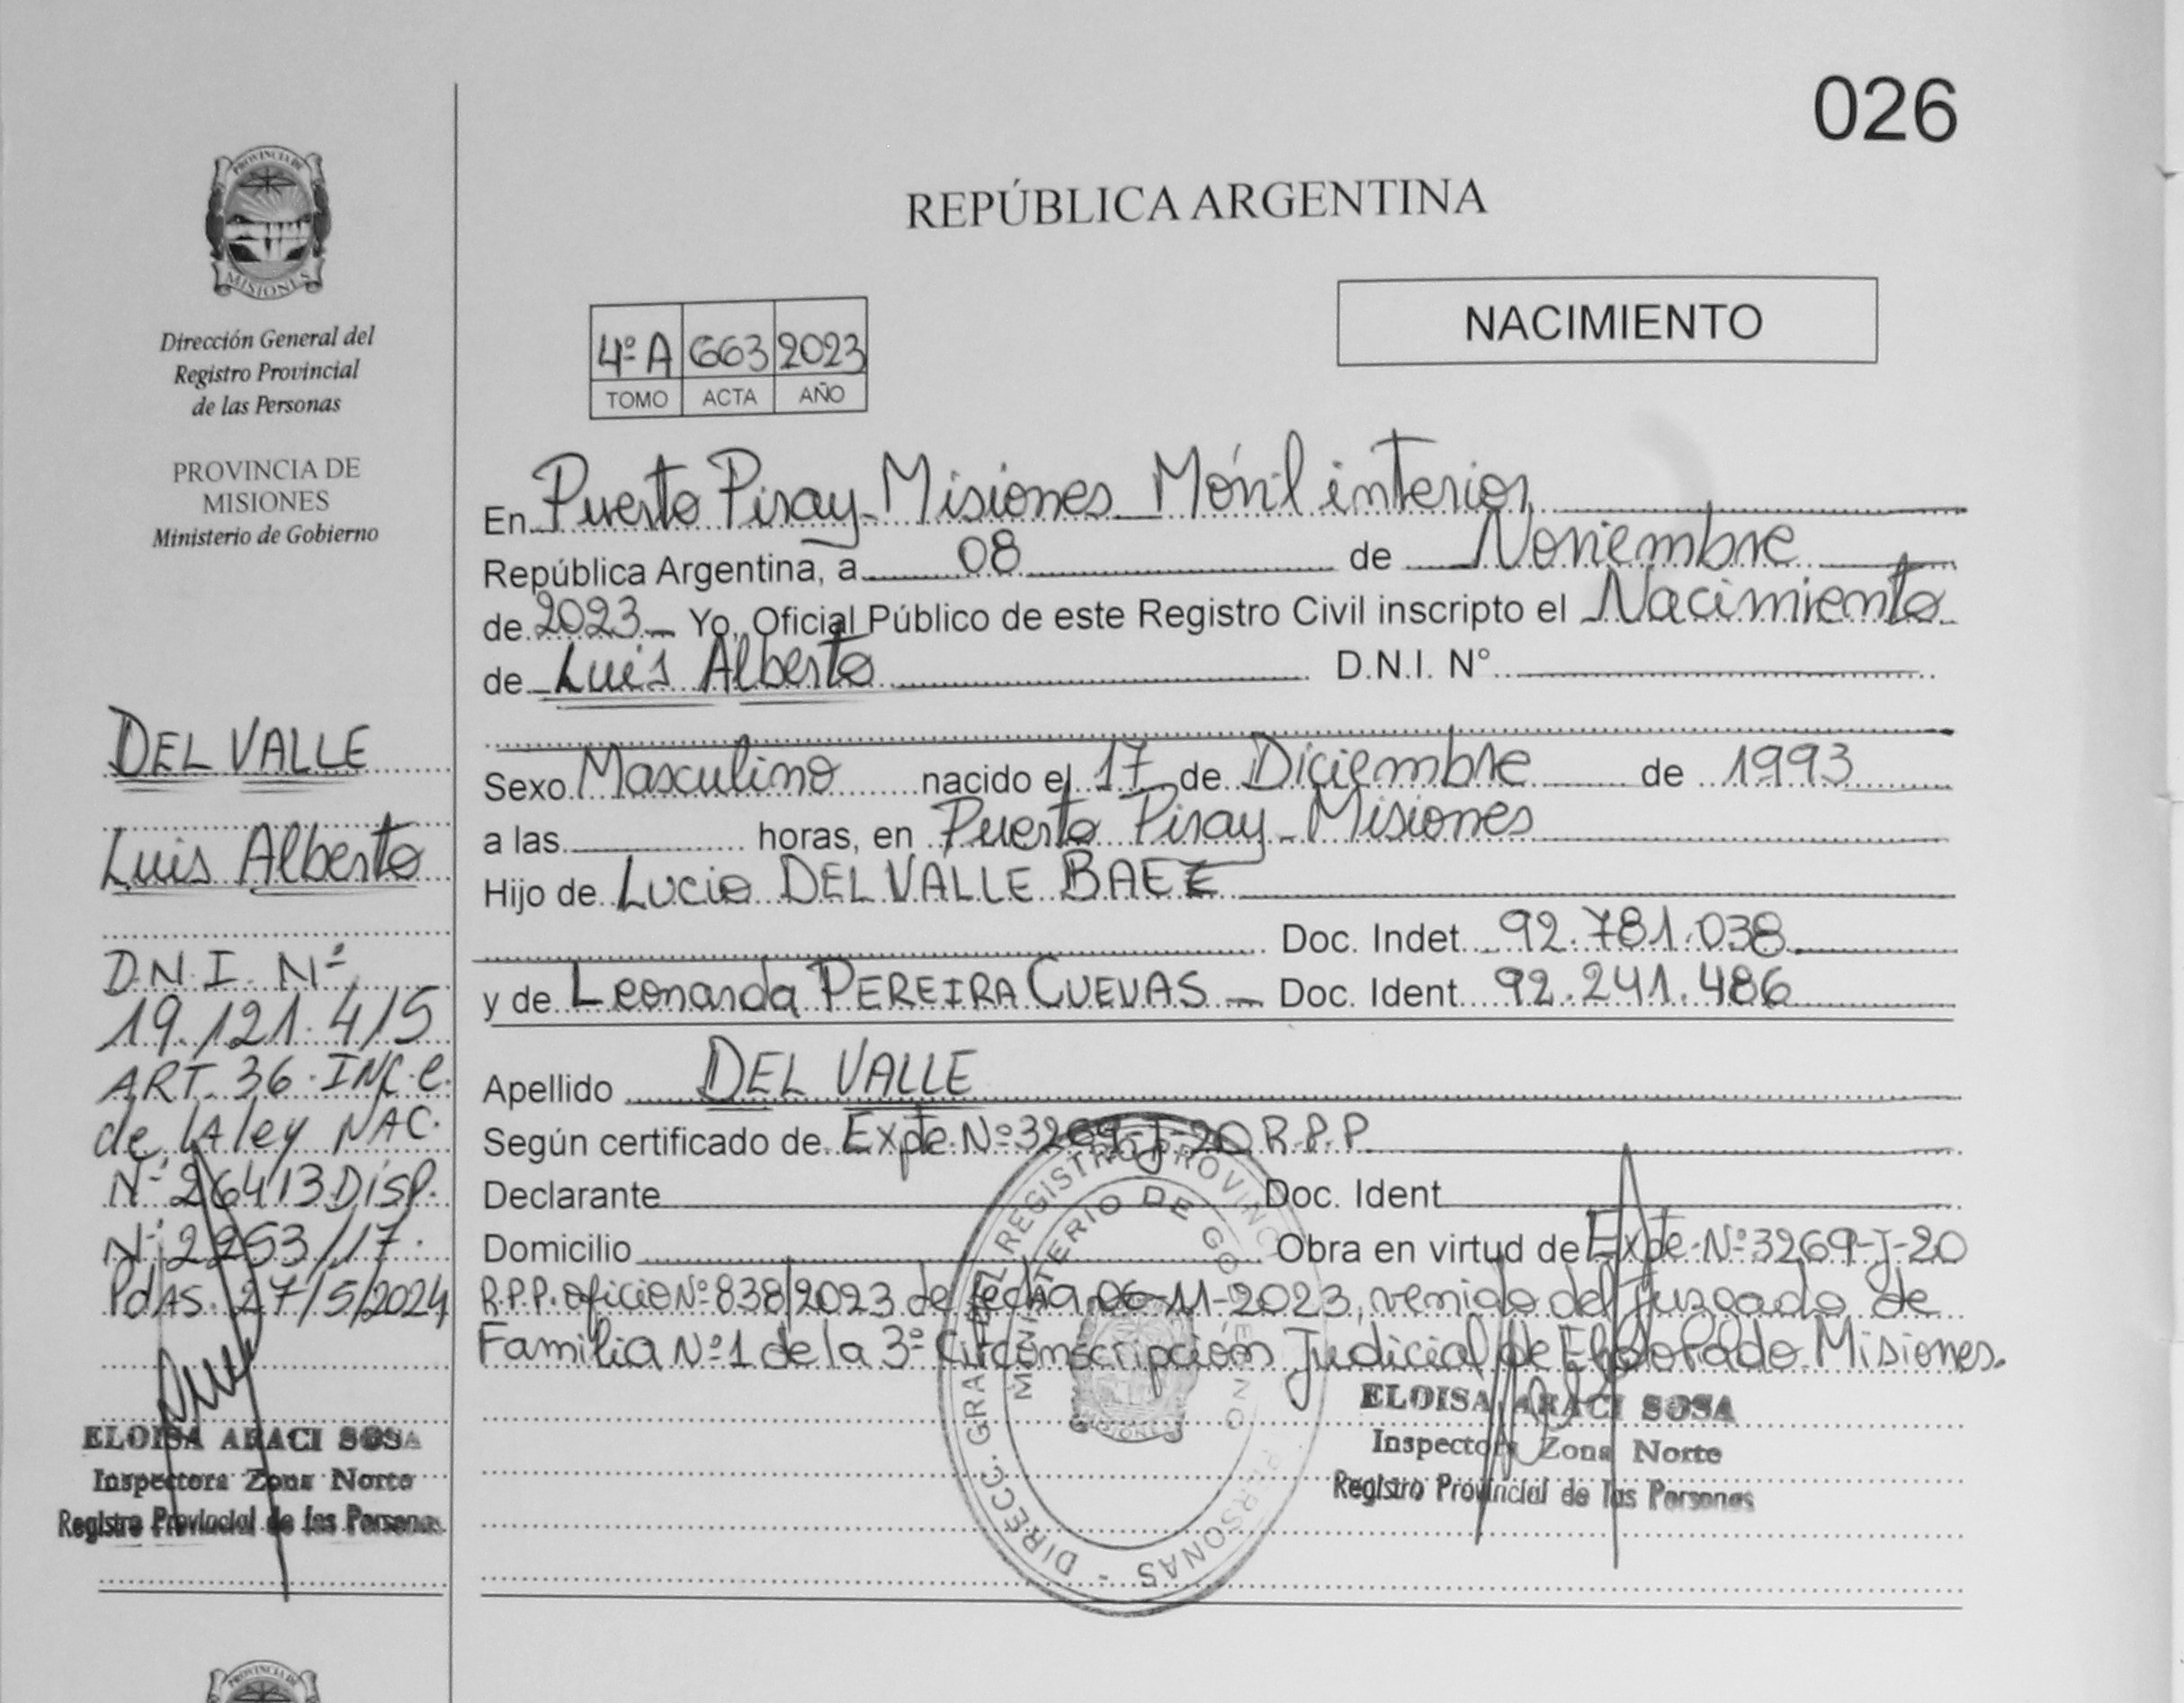 026
PROVINCIA DE
MISIONES
Dirección General del
Registro Provincial
de las Personas
PROVINCIA DE
MISIONES
Ministerio de Gobierno
DEL VALLE
Luis Alberto
D.N.I. Nº
19.121.415
ART. 36. INC. e.
de LA ley NAC.
Nº 26413 DISP.
Nº 2253/17.
PdAS. 27/5/2024
ELOISA ARACI SOSA
Inspectora Zona Norte
Registro Provincial de las Personas
REPÚBLICA ARGENTINA
NACIMIENTO
4º A 663 2023
TOMO ACTA AÑO
En Puerto Piray_Misiones_Móvil interior
República Argentina, a 08 de Noviembre
de 2023_ Yo, Oficial Público de este Registro Civil inscripto el Nacimiento
de Luis Alberto D.N.I. N°
Sexo Masculino nacido el 17 de Diciembre de 1993
a las horas, en Puerto Piray_Misiones
Hijo de Lucio DEL VALLE BAEZ
Doc. Indet 92.781.038
y de Leonarda PEREIRA CUEVAS _ Doc. Ident 92.241.486
Apellido DEL VALLE
Según certificado de Expte.Nº3269-J-20 R.P.P
Declarante Doc. Ident
Domicilio Obra en virtud de Expte.Nº3269-J-20
R.P.P. oficio Nº838/2023 de fecha 06-11-2023, venido del Juzgado de
Familia Nº1 de la 3º Circunscripción Judicial de Eldorado Misiones.
ELOISA ARACI SOSA
Inspectora Zona Norte
Registro Provincial de las Personas
MISIONES
PROVINCIA DE